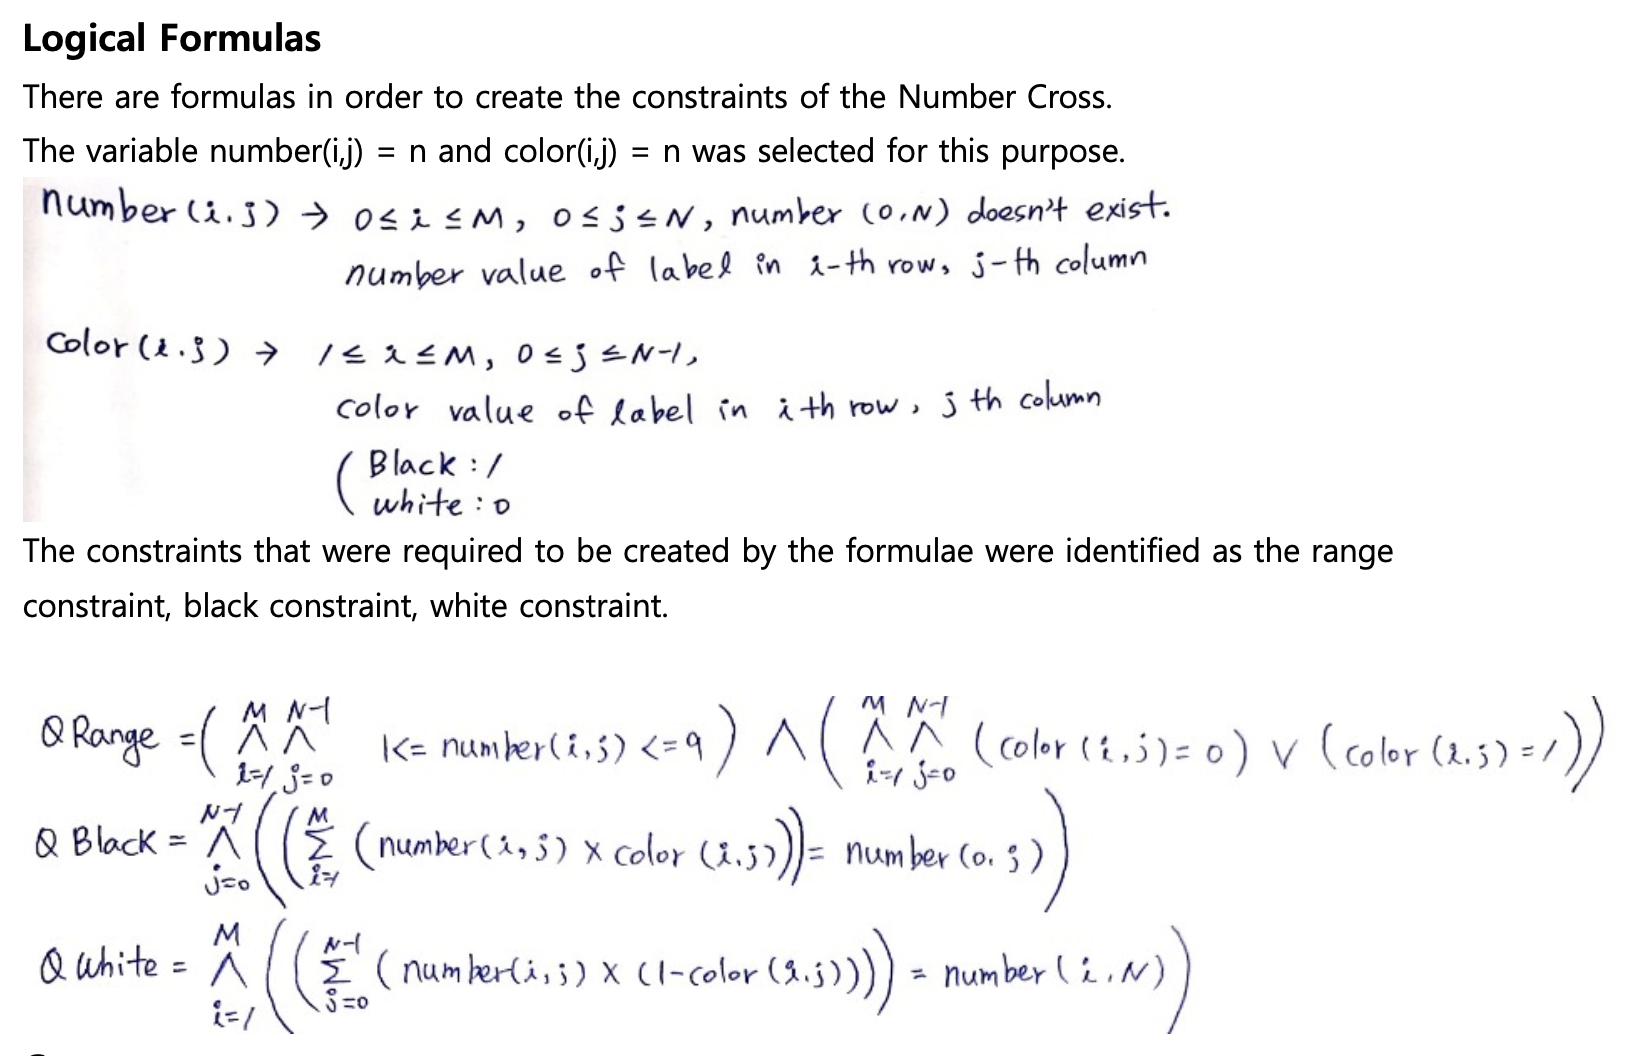 Logical Formulas
There are formulas in order to create the constraints of the Number Cross.
The variable number(i,j) = n and color(i,j) = n was selected for this purpose.
number(i.j) → 0≤i≤M, 0≤j≤N, number (0,N) doesn't exist.
number value of label in i-th row, j-th column
Color(i.j) → 1≤i≤M, 0≤j≤N-1,
color value of label in i th row, j th column
( Black : 1
white : 0
The constraints that were required to be created by the formulae were identified as the range
constraint, black constraint, white constraint.
Q Range = ( ∧_{i=1}^{M} ∧_{j=0}^{N-1} 1<= number(i,j) <=9 ) ∧ ( ∧_{i=1}^{M} ∧_{j=0}^{N-1} (color(i,j)=0) ∨ (color(i.j)=1))
Q Black = ∧_{j=0}^{N-1} ((∑_{i=1}^{M} (number(i,j) × color(i.j))) = number(0.j))
Q White = ∧_{i=1}^{M} ((∑_{j=0}^{N-1} (number(i,j) × (1-color(i.j)))) = number(i.N))